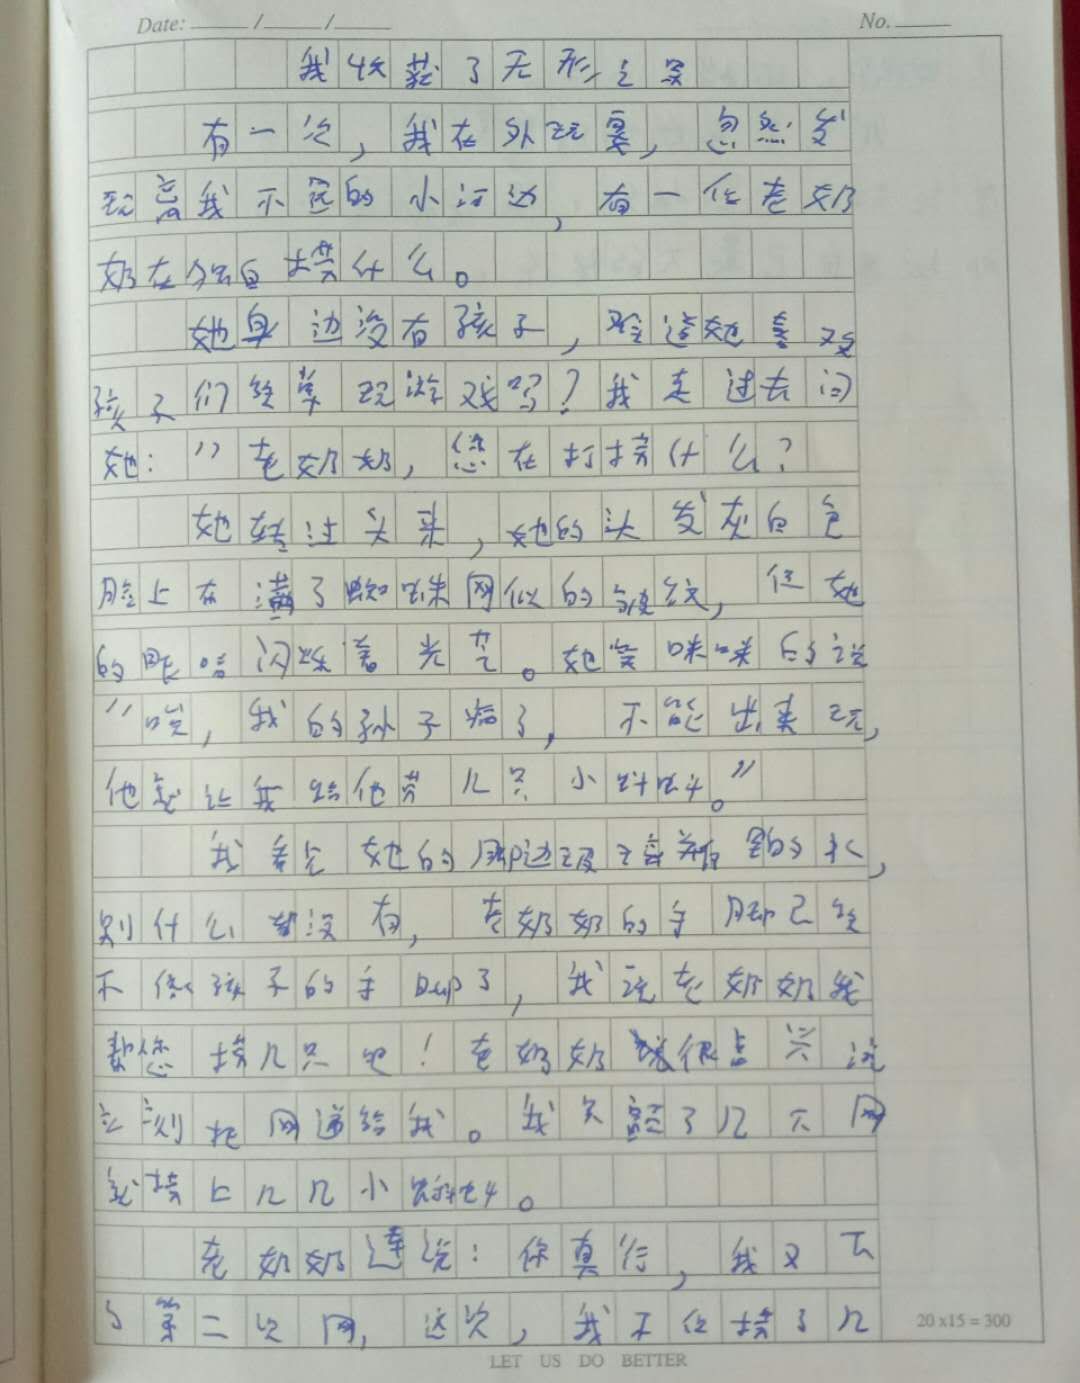 Date: ___/___/___ No. ___
我收获了无形之果
有一次，我在外玩耍，忽然发
现离我不远的小河边，有一位老奶
奶在独自捞什么。
她身边没有孩子，难道她喜欢
孩子们经常玩游戏吗？我走过去问
她："老奶奶，您在打捞什么？
她转过头来，她的头发灰白色
脸上布满了蜘蛛网似的皱纹，但她
的眼睛闪烁着光芒。她笑咪咪的说
"唉，我的孙子病了，不能出来玩，
他就让我给他劳几只小蝌蚪。"
我看见她的脚边
别什么都没有，老奶奶的手脚已经
不像孩子的手脚了，我说老奶奶我
帮您捞几只吧！老奶奶很高兴说
立刻把网递给我。我了几下网
就捞上几几小蝌蚪。
老奶奶连说：你真行，我又下
了第二次网，这次，我不但捞了几
20 x15 = 300
LET US DO BETTER